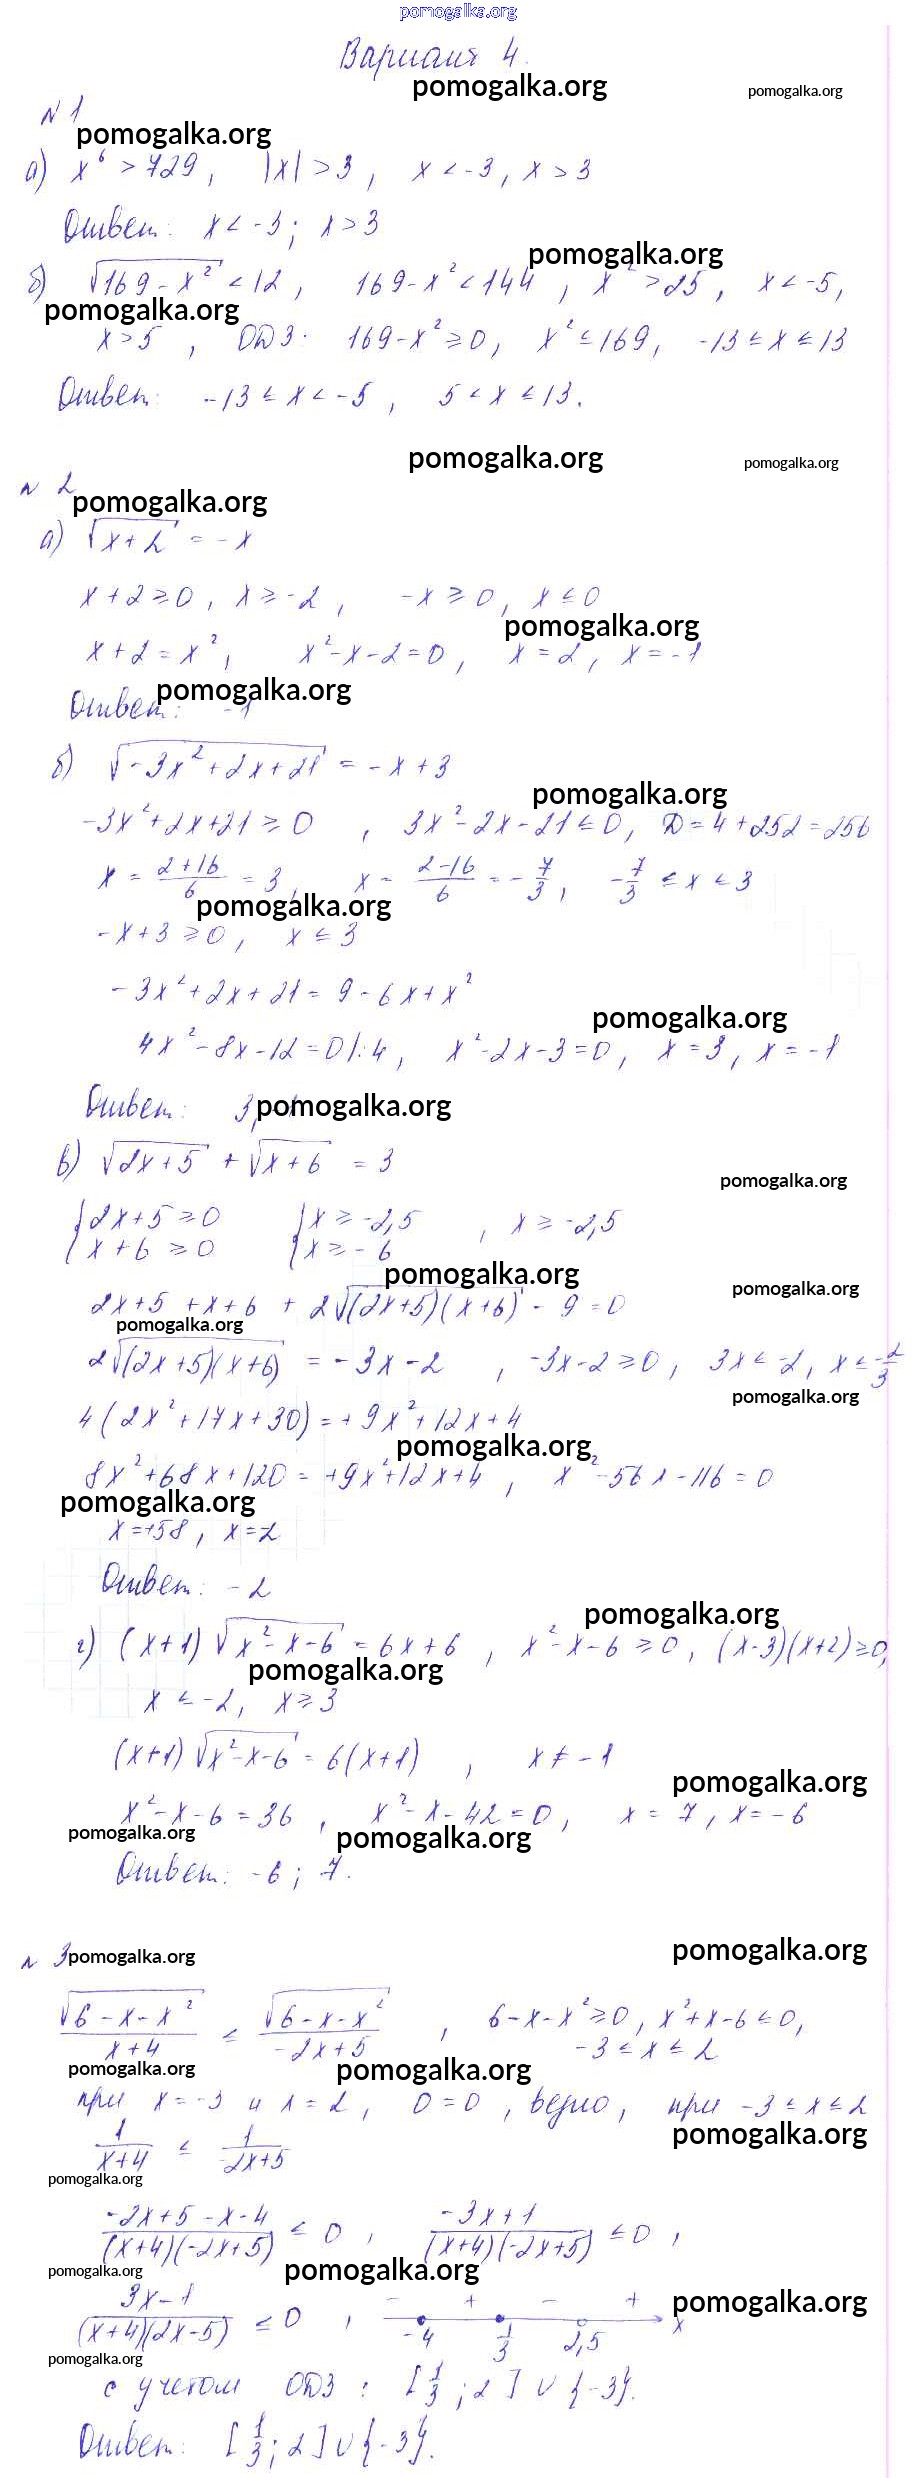 pomogalka.org
Вариант 4.
pomogalka.org pomogalka.org
№ 1
pomogalka.org
а) x⁶ > 729, |x| > 3, x < -3, x > 3
Ответ: x < -3; x > 3
pomogalka.org
б) √(169 - x²) < 12, 169 - x² < 144, x² > 25, x < -5,
pomogalka.org
x > 5, ОДЗ: 169 - x² ≥ 0, x² ≤ 169, -13 ≤ x ≤ 13
Ответ: -13 ≤ x < -5, 5 < x ≤ 13.
pomogalka.org pomogalka.org
№ 2
pomogalka.org
а) √(x + 2) = -x
x + 2 ≥ 0, x ≥ -2, -x ≥ 0, x ≤ 0
pomogalka.org
x + 2 = x², x² - x - 2 = 0, x = 2, x = -1
pomogalka.org
Ответ: -1
б) √(-3x² + 2x + 21) = -x + 3
pomogalka.org
-3x² + 2x + 21 ≥ 0, 3x² - 2x - 21 ≤ 0, D = 4 + 252 = 256
x = (2 + 16)/6 = 3, x = (2 - 16)/6 = -7/3, -7/3 ≤ x ≤ 3
pomogalka.org
-x + 3 ≥ 0, x ≤ 3
-3x² + 2x + 21 = 9 - 6x + x²
pomogalka.org
4x² - 8x - 12 = 0 |:4, x² - 2x - 3 = 0, x = 3, x = -1
Ответ: 3, -1
pomogalka.org
в) √(2x + 5) + √(x + 6) = 3
pomogalka.org
{2x + 5 ≥ 0 {x ≥ -2,5, x ≥ -2,5
x + 6 ≥ 0 x ≥ -6
pomogalka.org pomogalka.org
2x + 5 + x + 6 + 2√((2x + 5)(x + 6)) - 9 = 0
pomogalka.org
2√((2x + 5)(x + 6)) = -3x - 2, -3x - 2 ≥ 0, 3x ≤ -2, x ≤ -2/3
pomogalka.org
4(2x² + 17x + 30) = +9x² + 12x + 4
pomogalka.org
8x² + 68x + 120 = +9x² + 12x + 4, x² - 56x - 116 = 0
pomogalka.org
x = +58, x = -2
Ответ: -2
pomogalka.org
г) (x + 1)√(x² - x - 6) = 6x + 6, x² - x - 6 ≥ 0, (x - 3)(x + 2) ≥ 0,
pomogalka.org
x ≤ -2, x ≥ 3
(x + 1)√(x² - x - 6) = 6(x + 1), x ≠ -1
pomogalka.org
x² - x - 6 = 36, x² - x - 42 = 0, x = 7, x = -6
pomogalka.org pomogalka.org
Ответ: -6; 7.
pomogalka.org
№ 3
pomogalka.org
√(6 - x - x²)/(x + 4) ≤ √(6 - x - x²)/(-2x + 5), 6 - x - x² ≥ 0, x² + x - 6 ≤ 0,
-3 ≤ x ≤ 2
pomogalka.org pomogalka.org
при x = -3 и x = 2, 0 = 0, верно, при -3 ≤ x ≤ 2
pomogalka.org
1/(x + 4) ≤ 1/(-2x + 5)
pomogalka.org
(-2x + 5 - x - 4)/((x + 4)(-2x + 5)) ≤ 0, (-3x + 1)/((x + 4)(-2x + 5)) ≤ 0,
pomogalka.org pomogalka.org
(3x - 1)/((x + 4)(2x - 5)) ≤ 0, - + - +
pomogalka.org
-4 1/3 2,5 x
pomogalka.org
с учетом ОДЗ: [1/3; 2] ∪ {-3}.
Ответ: [1/3; 2] ∪ {-3}.